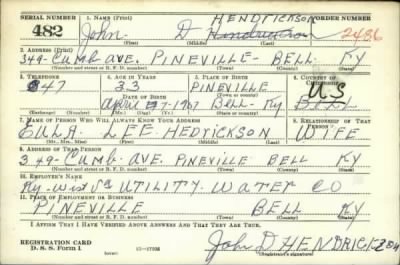 SERIAL NUMBER 1. NAME (Print) HENDRICKSON ORDER NUMBER
482 John D Hendrickson 2436
(First) (Middle) (Last)
2. ADDRESS (Print)
349- Cumb AVE. PINEVILLE- BELL KY
(Number and street or R. F. D. number) (Town) (County) (State)
3. TELEPHONE 4. AGE IN YEARS 5. PLACE OF BIRTH 6. COUNTRY OF CITIZENSHIP
847 33 PINEVILLE US
DATE OF BIRTH (Town or county)
April 27-1907 BELL- Ky BELL
(Exchange) (Number) (Mo.) (Day) (Yr.) (State or country)
7. NAME OF PERSON WHO WILL ALWAYS KNOW YOUR ADDRESS 8. RELATIONSHIP OF THAT PERSON
EULA LEE HEDRICKSON WIFE
(Mr., Mrs., Miss) (First) (Middle) (Last)
9. ADDRESS OF THAT PERSON
349- Cumb- AVE. PINEVILLE BELL KY
(Number and street or R. F. D. number) (Town) (County) (State)
10. EMPLOYER'S NAME
Ky- UTILITY- WATER CO
11. PLACE OF EMPLOYMENT OR BUSINESS
PINEVILLE BELL KY
(Number and street or R. F. D. number) (Town) (County) (State)
I AFFIRM THAT I HAVE VERIFIED ABOVE ANSWERS AND THAT THEY ARE TRUE.
REGISTRATION CARD
D. S. S. Form 1 John D HENDRICKSON
(Registrant's signature)